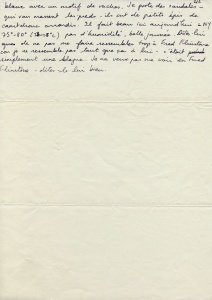 blanc avec un motif de vaches. Je porte des sandales
qui vont me montrent les pieds - ils ont de petits
caoutchouc arrondis. Il fait beau ici aujourd'hui à NY
75°-80° ( ) pas d'humidité, belle journée. Dites-lui
que de ne pas me faire ressembler trop à Fred Flintstone
car je ne ressemble pas tant que ça à lui - c'était
simplement une blague. Je ne veux pas me voir en Fred
Flintstone - dites-le lui bien.